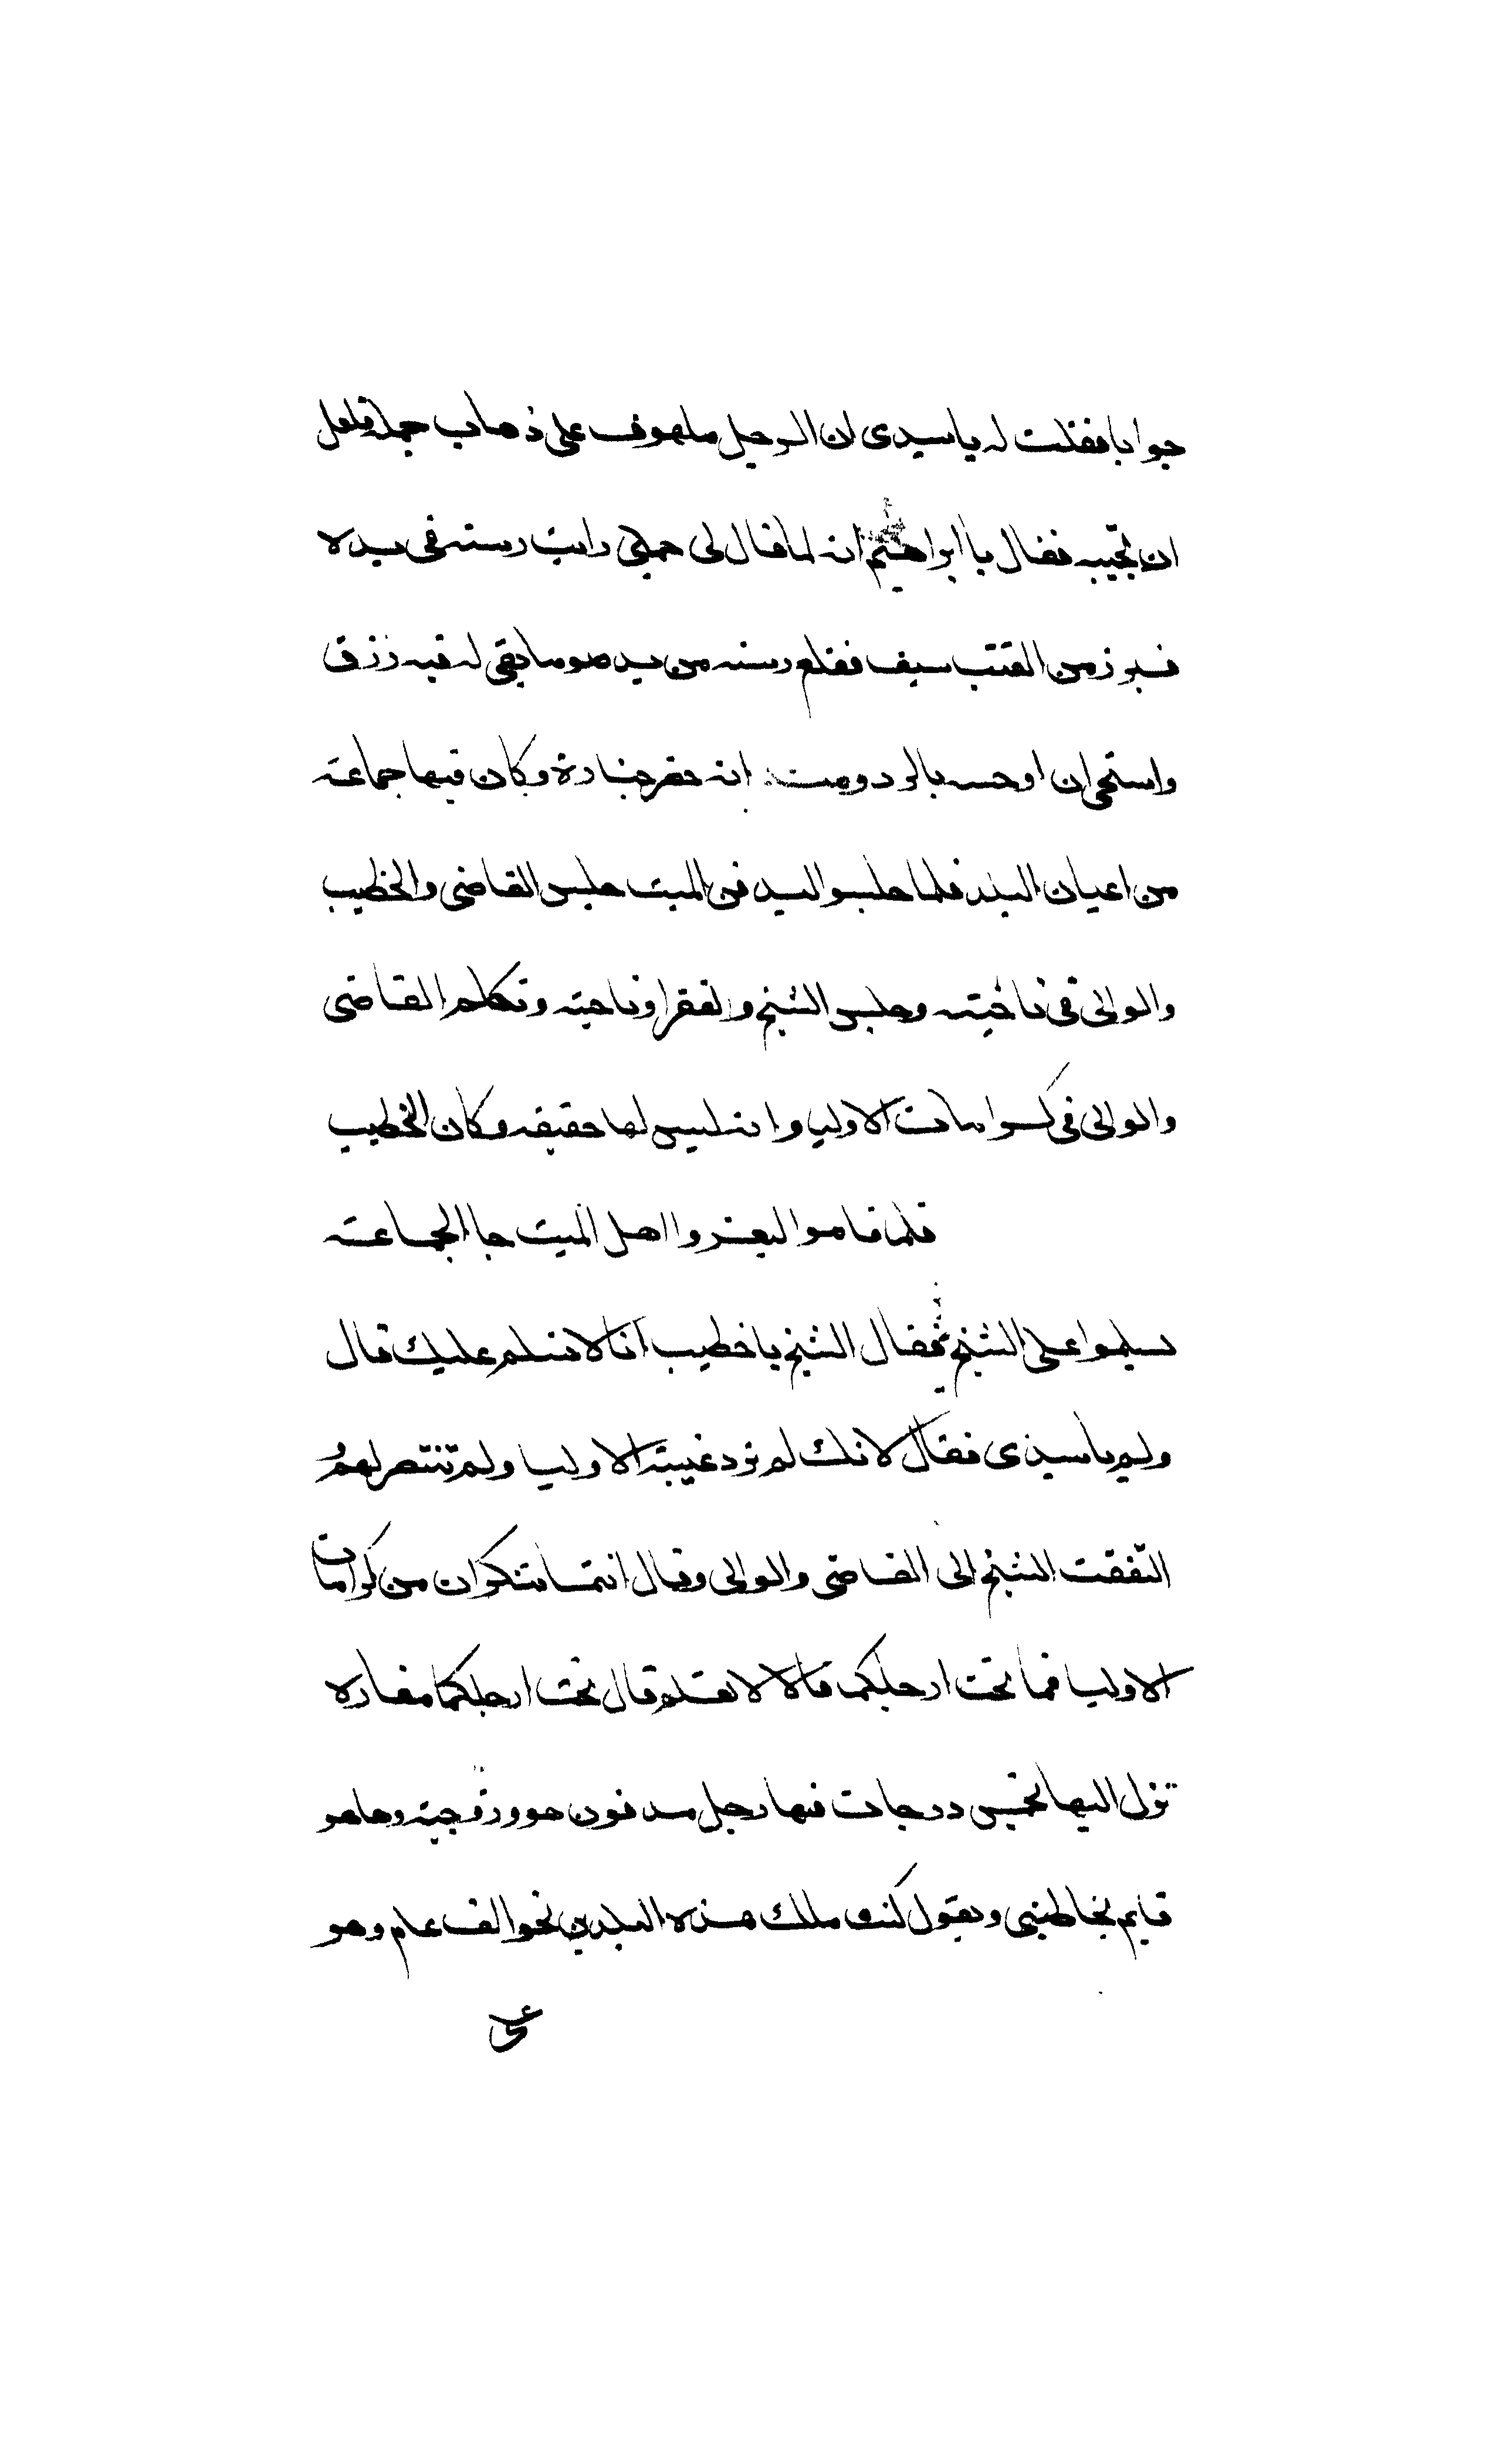 جوابا فقلت له يا سيدى ان الرجل ملهوف على ذهاب جمله فلعل
ان تجيبه فقال يا ابراهيم انه لما قال لى جملى رايت رسنه فى يده
فبرز من القتب سيف فقطع رسنه من يده وما بقى له فيه رزق
واستحى ان اوحسه بالرد ومنها انه حضر جنازة وكان فيها جماعة
من اعيان البلد فلما جلسوا لدفن الميت جلس القاضى والخطيب
والوالى فى ناحية وجلس الشيخ والفقرا فى ناحية وتكلم القاضى
والوالى فى كرامات الاوليا وانه ليس لها حقيقة وكان الخطيب
فلما قاموا ليعزوا اهل الميت جا الجماعة
يسلموا على الشيخ فقال الشيخ يا خطيب انا لا نسلم عليك قال
ولم يا سيدى فقال لانك لم ترد غيبة الاوليا ولم تنتصر لهم
التفت الشيخ الى القاضى والوالى وقال انتما تنكران من كرامات
الاوليا فما تحت ارجلكما قالا لا نعلم قال تحت ارجلكما مغاره
تنزل اليها بخمس درجات فيها رجل مدفون هو وزوجته وها هو
قايم يخاطبنى ويقول كنت ملك هذه البلدين نحو الف عام وهو
على